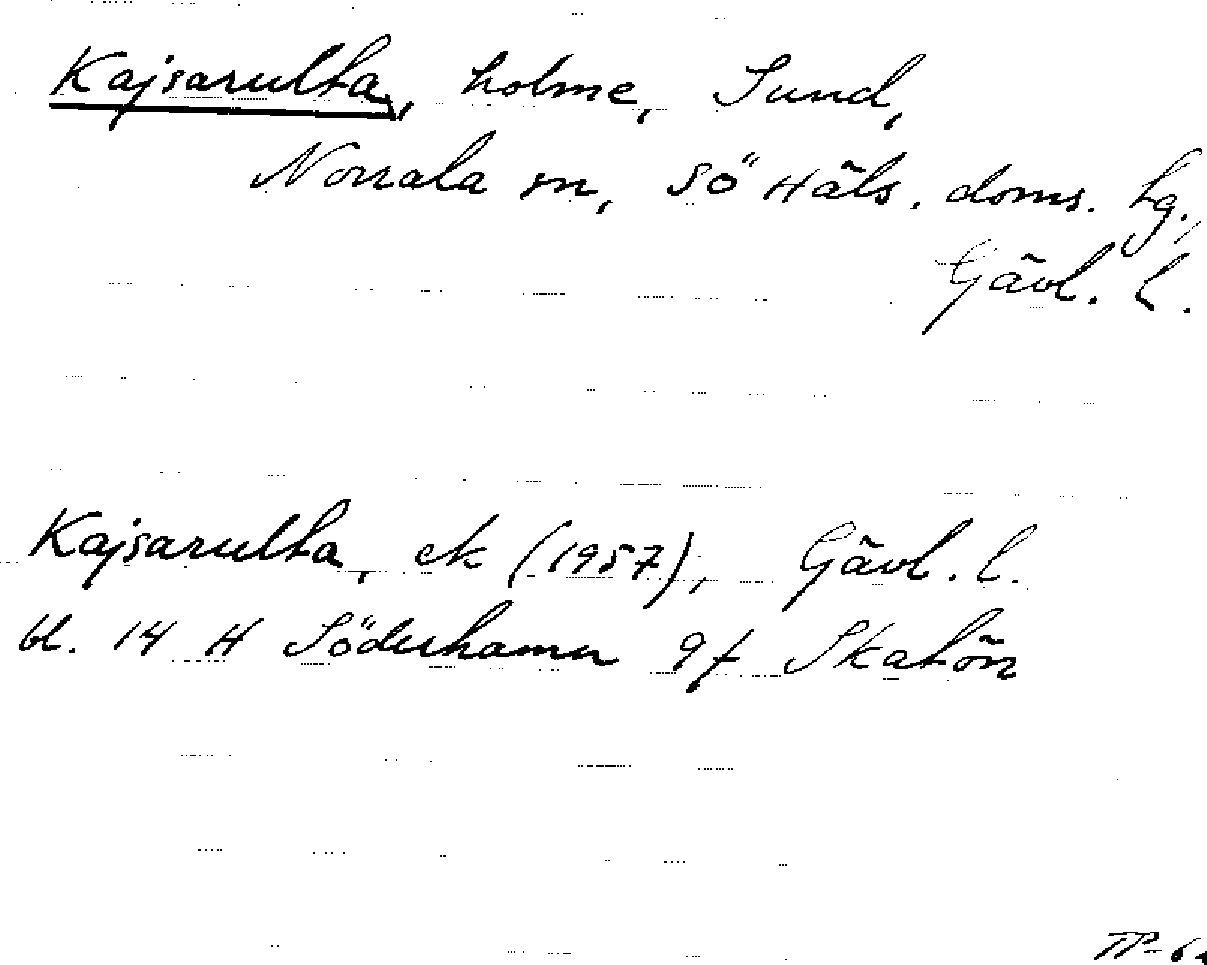 Kajsarulta, holme, Sund,
Norrala sn, Sö Häls. doms. hg.,
Gävl. l.
Kajsarulta, ek (1957), Gävl. l.
bl. 14 H Söderhamn 9f Skatön